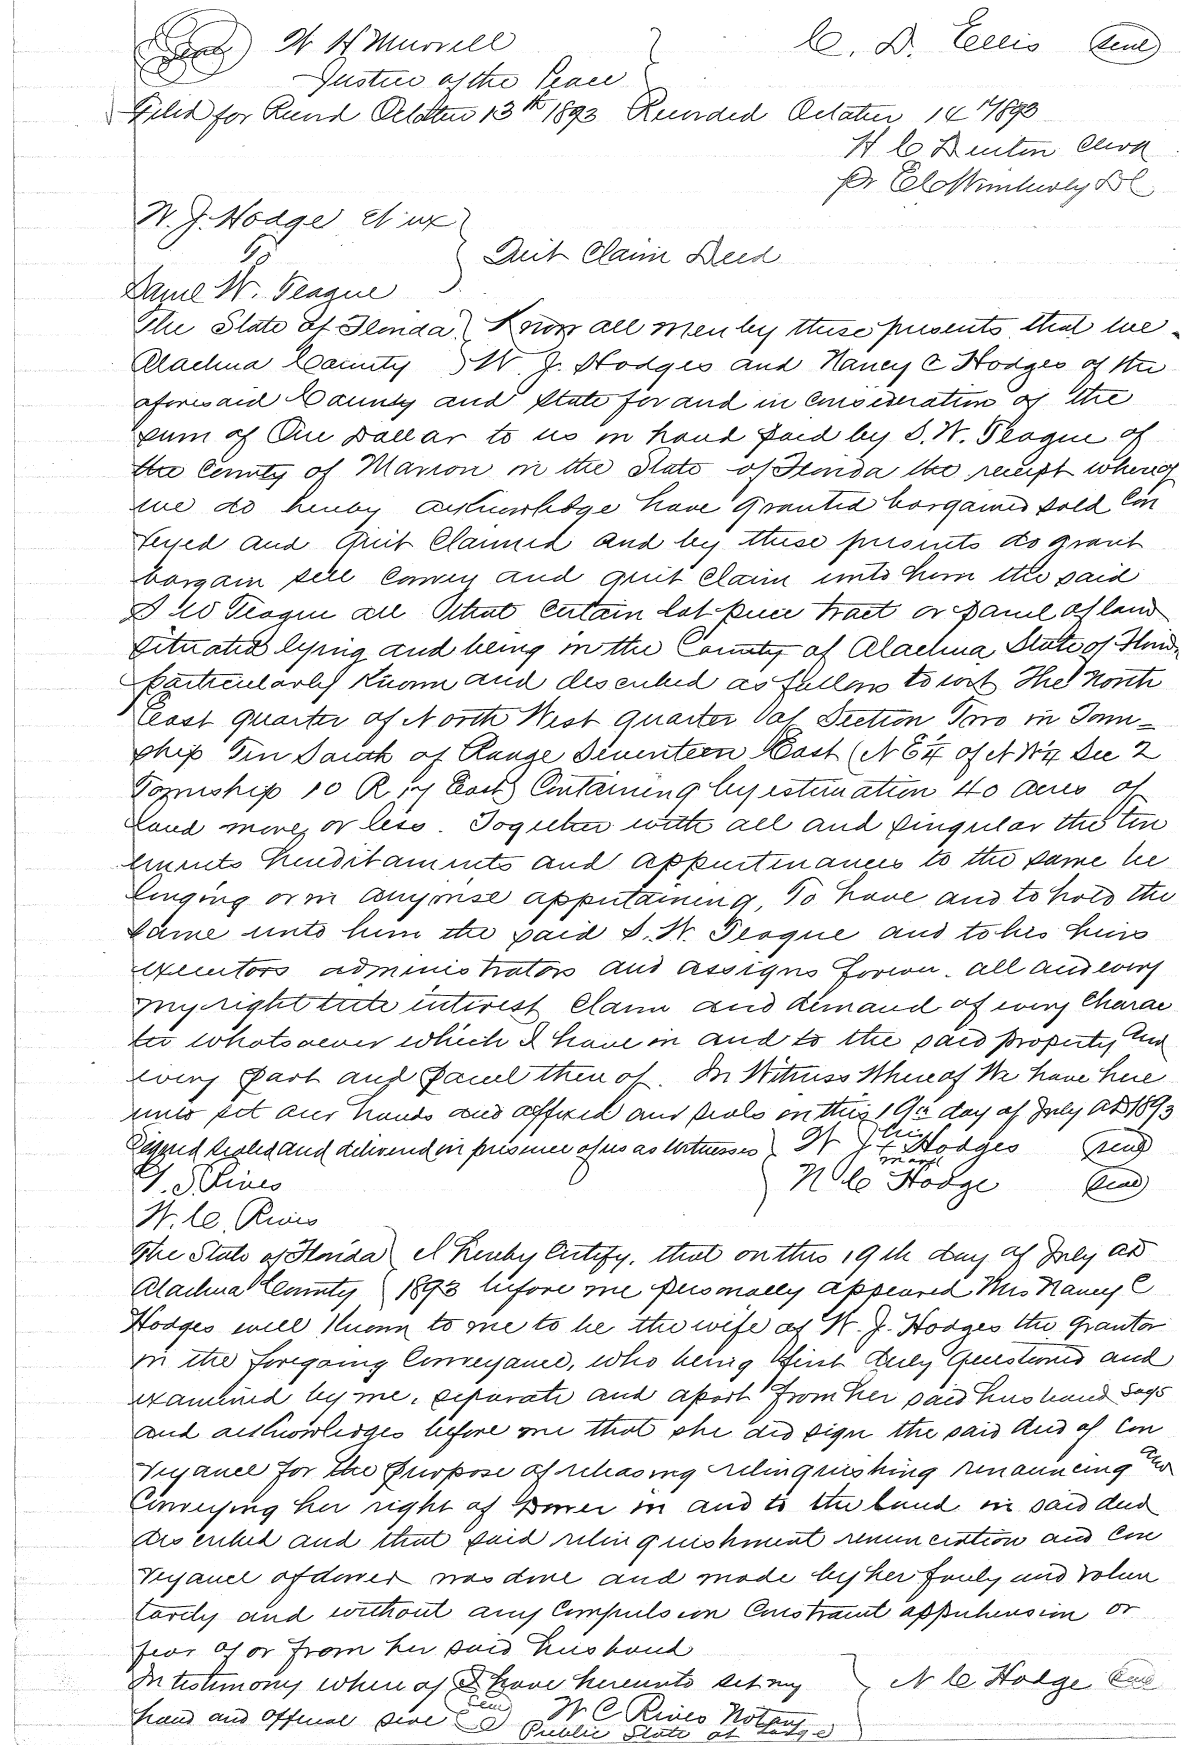 Seal W H Murrell C. D. Ellis Seal
Justice of the Peace
Filed for Record October 13th 1893 Recorded October 14th 1893
H C Denton Clerk
Pr E C Wimberly DC
W. J. Hodge et ux
To
Quit Claim Deed
Saml W. Teague
The State of Florida Know all men by these presents that we
Alachua County W. J. Hodges and Nancy C Hodges of the
aforesaid County and State for and in consideration of the
sum of One Dollar to us in hand paid by S. W. Teague of
the County of Marion in the State of Florida the receipt whereof
we do hereby acknowledge have granted bargained sold Con
veyed and Quit Claimed and by these presents do grant
bargain sell Convey and quit Claim unto him the said
S W Teague all that certain lot piece tract or parcel of land
situated lying and being in the County of Alachua State of Florida
particularly known and described as follows to wit The North
East quarter of North West quarter of Section Two in Town=
ship Ten South of Range Seventeen East (N E¼ of N W¼ Sec 2
Township 10 R 17 East) Containing by estimation 40 acres of
land more or less. Together with all and singular the ten
ements hereditaments and appurtenances to the same be
longing or in anywise appertaining, To have and to hold the
same unto him the said S. W. Teague and to his heirs
executors administrators and assigns forever. all and every
my right title interest Claim and demand of every Charac
ter whatsoever which I have in and to the said property and
every part and parcel thereof. In Witness Whereof We have here
unto set our hands and affixed our seals on this 19th day of July AD 1893
Signed sealed and delivered in presence of us as witnesses W J his x mark Hodges Seal
T. S. Rives N C Hodge Seal
W. C. Rives
The State of Florida I hereby Certify, that on this 19th day of July AD
Alachua County 1893 before me personally appeared Mrs Nancy C
Hodges well known to me to be the wife of W. J. Hodges the grantor
in the foregoing Conveyance, who being first duly questioned and
examined by me, separate and apart from her said husband says
and acknowledges before me that she did sign the said deed of Con
veyance for the purpose of releasing relinquishing renouncing and
Conveying her right of Dower in and to the land in said deed
described and that said relinquishment renunciation and Con
veyance of dower was done and made by her freely and volun
tarily and without any Compulsion Constraint apprehension or
fear of or from her said husband
In testimony where of I have hereunto set my N C Hodge Seal
hand and official seal Seal W C Rives Notary
Public State at Large